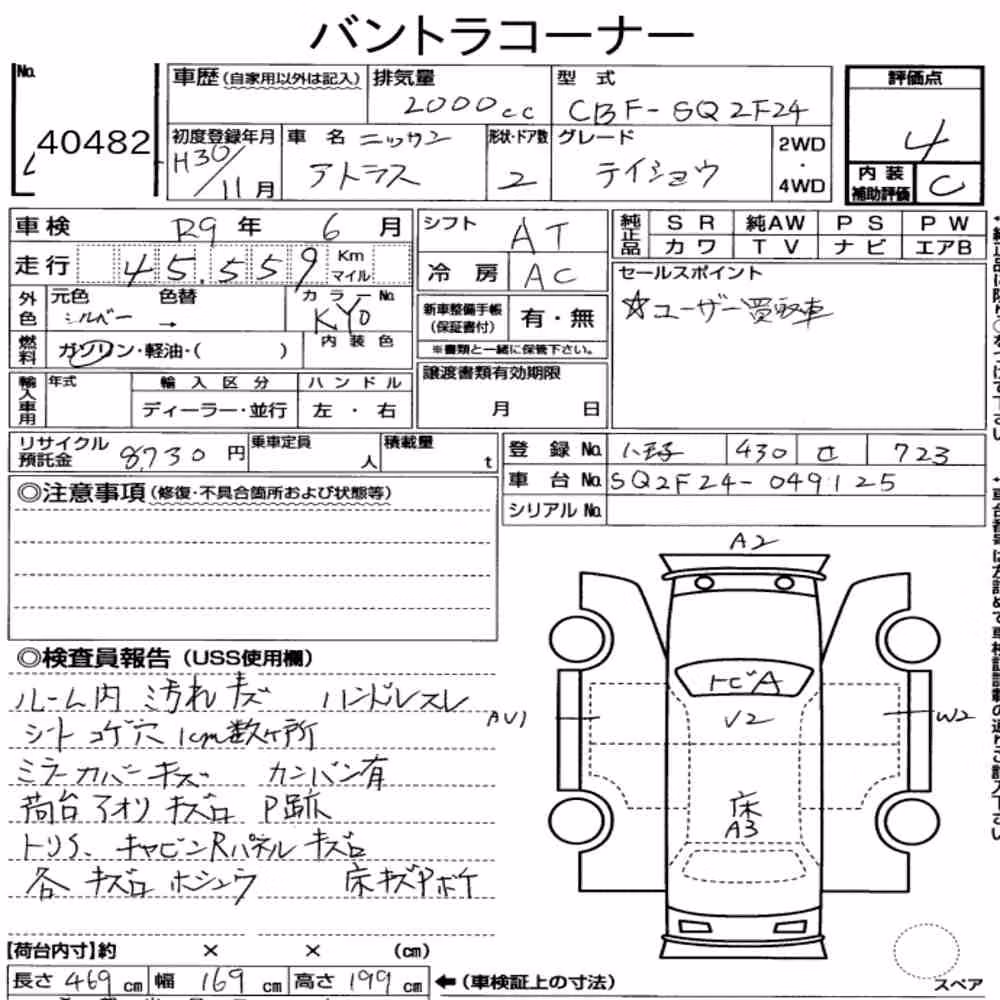 バントラコーナー
No.
40482
車歴(自家用以外は記入)
排気量
2000cc
型 式
CBF-SQ2F24
評価点
4
初度登録年月
H30/11月
車 名 ニッサン
アトラス
形状・ドア数
2
グレード
テイショウ
2WD
・
4WD
内 装
補助評価
C
車検 R9 年 6 月
走行 45,559 Km
マイル
外色
元色 色替
シルバー →
カラーNo
KY0
燃料
ガソリン・軽油・( )
内 装 色
輸入車用
年式
輸 入 区 分
ディーラー・並行
ハ ン ド ル
左 ・ 右
シフト AT
冷 房 AC
新車整備手帳
(保証書付)
有・無
※書類と一緒に保管下さい。
譲渡書類有効期限
月 日
純正品
S R 純AW P S P W
カ ワ T V ナ ビ エアB
セールスポイント
☆ユーザー買取車
リサイクル
預託金
8,730 円
乗車定員
人
積載量
t
登 録 No. 八王子 430 せ 723
車 台 No. SQ2F24-049125
シリアル No.
◎注意事項(修復・不具合箇所および状態等)
◎検査員報告(USS使用欄)
ルーム内 汚れ キズ ハンドルスレ
シート コゲ穴 1cm数ヶ所
ミラーカバー キズ カンバン有
荷台 アオリ キズロ P跡
トリS、キャビンRパネル キズロ
各 キズロ ホシュウ 床キズPボケ
A2
トビA
V2
AV1
W2
床
A3
スペア
[荷台内寸]約 × × (cm)
長さ 469 cm 幅 169 cm 高さ 199 cm
←(車検証上の寸法)